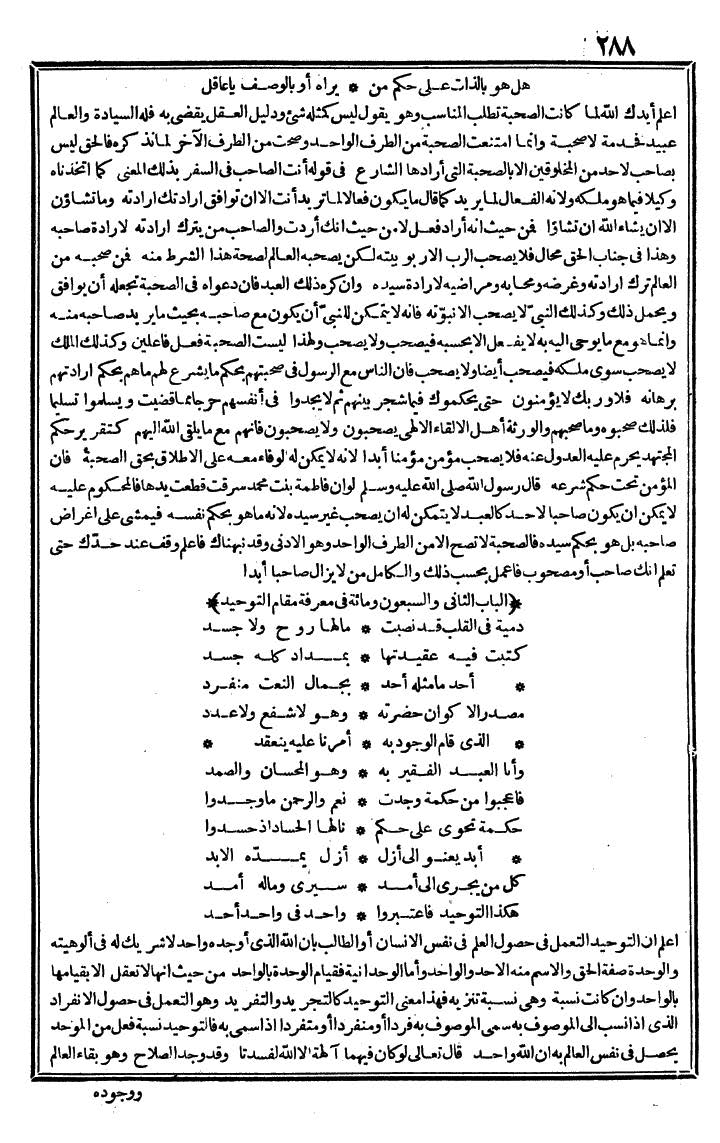 ٢٨٨
هل هو بالذات على حكم من * يراه أو بالوصف يا عاقل
اعلم أيدك الله لما كانت الصحبة تطلب المناسب وهو يقول ليس كمثله شئ ودليل العقل يقضى به فله السيادة والعالم
عبيد فخدمة لا صحبة وانما امتنعت الصحبة من الطرف الواحد وصحت من الطرف الآخر لما نذكره فالحق ليس
بصاحب لاحد من المخلوقين الا بالصحبة التى أرادها الشارع فى قوله أنت الصاحب فى السفر بذلك المعنى كما اتخذناه
وكيلا فيما هو ملكه ولانه الفعال لما يريد كما قال ما يكون فعالا لما تريد أنت الا ان توافق ارادتك ارادته وما تشاؤن
الا ان يشاء الله ان تشاؤا فمن حيث انه أراد فعل لا من حيث انك أردت والصاحب من يترك ارادته لارادة صاحبه
وهذا فى جناب الحق محال فلا يصحب الرب الا ربوبيته لكن يصحبه العالم لصحة هذا الشرط منه فمن صحبه من
العالم ترك ارادته وغرضه ومحابه ومراضيه لارادة سيده وان كره ذلك العبد فان دعواه فى الصحبة تجعله أن يوافق
ويحمل ذلك وكذلك النبى لا يصحب الا نبوّته فانه لا يتمكن للنبىّ أن يكون مع صاحبه بحيث ما يريد صاحبه منه
وانما هو مع ما يوحى اليه به لا يفعل الا بحسبه فيصحب ولا يصحب ولهذا ليست الصحبة فعل فاعلين وكذلك الملك
لا يصحب سوى ملكه فيصحب أيضا ولا يصحب فان الناس مع الرسول فى صحبتهم بحكم ما يشرع لهم ما هم بحكم ارادتهم
برهانه فلا وربك لا يؤمنون حتى يحكموك فيما شجر بينهم ثم لا يجدوا فى أنفسهم حرجا مما قضيت ويسلموا تسليما
فلذلك صحبوه وما صحبهم والورثة أهل الالقاء الالهى يصحبون ولا يصحبون فانهم مع ما يلقى الله اليهم كتقرير حكم
المجتهد يحرم عليه العدول عنه فلا يصحب مؤمن مؤمنا أبدا لانه لا يمكن له الوفاء معه على الاطلاق بحق الصحبة فان
المؤمن تحت حكم شرعه قال رسول الله صلى الله عليه وسلم لو ان فاطمة بنت محمد سرقت قطعت يدها فالمحكوم عليه
لا يمكن ان يكون صاحبا لاحد كالعبد لا يتمكن له ان يصحب غير سيده لانه ما هو بحكم نفسه فيمشى على اغراض
صاحبه بل هو بحكم سيده فالصحبة لا تصح الا من الطرف الواحد وهو الادنى وقد نبهناك فاعلم وقف عند حدّك حتى
تعلم انك صاحب أو مصحوب فاعمل بحسب ذلك والكامل من لا يزال صاحبا أبدا
﴿الباب الثانى والسبعون ومائة فى معرفة مقام التوحيد﴾
دمية فى القلب قد نصبت * ما لها روح ولا جسد
كتبت فيه عقيدتها * بمداد كله جسد
* أحد ما مثله أحد * بجمال النعت منفرد
مصدر الا كوان حضرته * وهو لا شفع ولا عدد
* الذى قام الوجود به * أمرنا عليه ينعقد *
وأنا العبد الفقير به * وهو المحسان والصمد
فاعجبوا من حكمة وجدت * نعم والرحمن ما وجدوا
حكمة تحوى على حكم * نالها الحساد اذ حسدوا
* أبد يعنو الى أزل * أزل يمدّه الابد
كل من يجرى الى أمد * سيرى وماله أمد
هكذا التوحيد فاعتبروا * واحد فى واحد أحد
اعلم ان التوحيد التعمل فى حصول العلم فى نفس الانسان أو الطالب بان الله الذى أوجده واحد لا شريك له فى ألوهيته
والوحدة صفة الحق والاسم منه الاحد والواحد وأما الوحدانية فقيام الوحدة بالواحد من حيث انها لا تعقل الا بقيامها
بالواحد وان كانت نسبة وهى نسبة تنزيه فهذا معنى التوحيد كالتجريد والتفريد وهو التعمل فى حصول الانفراد
الذى اذا نسب الى الموصوف به سمى الموصوف به فردا أو منفردا أو متفردا اذا سمى به فالتوحيد نسبة فعل من الموحد
يحصل فى نفس العالم به ان الله واحد قال تعالى لو كان فيهما آلهة الا الله لفسدتا وقد وجد الصلاح وهو بقاء العالم
ووجوده